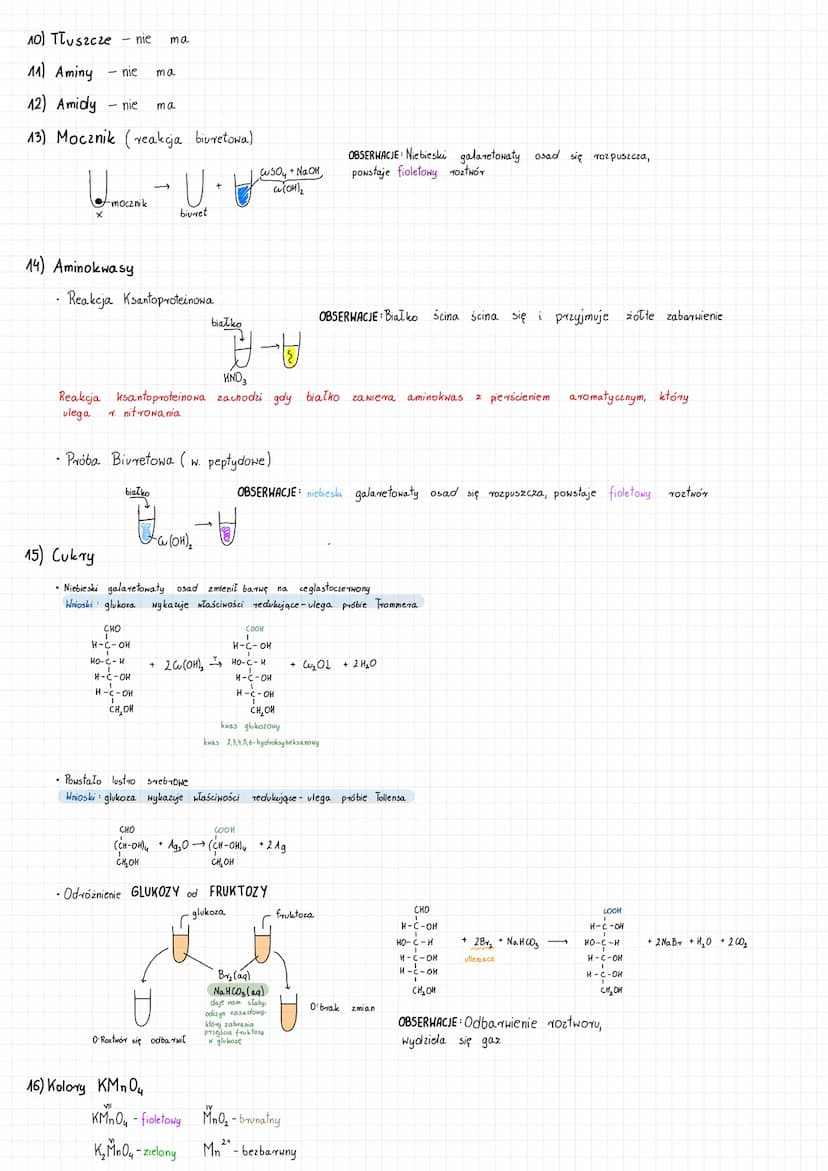 10) Tłuszcze - nie ma
11) Aminy - nie ma
12) Amidy - nie ma
13) Mocznik (reakcja biuretowa)
OBSERWACJE: Niebieski galaretowaty osad się rozpuszcza,
powstaje fioletowy roztwór
mocznik
x
→
biuret
+
CuSO₄ + NaOH
Cu(OH)₂
14) Aminokwasy
• Reakcja Ksantoproteinowa
białko
HNO₃
→
OBSERWACJE: Białko ścina ścina się i przyjmuje żółte zabarwienie
Reakcja ksantoproteinowa zachodzi gdy białko zawiera aminokwas z pierścieniem aromatycznym, który
ulega r. nitrowania
• Próba Biuretowa (w. peptydowe)
białko
Cu(OH)₂
→
OBSERWACJE: niebieski galaretowaty osad się rozpuszcza, powstaje fioletowy roztwór
15) Cukry
• Niebieski galaretowaty osad zmienił barwę na ceglastoczerwony
Wnioski: glukoza wykazuje właściwości redukujące - ulega próbie Trommera
CHO
H-C-OH
HO-C-H
H-C-OH
H-C-OH
CH₂OH
+ 2Cu(OH)₂ T→
COOH
H-C-OH
HO-C-H
H-C-OH
H-C-OH
CH₂OH
+ Cu₂O↓ + 2H₂O
kwas glukozowy
kwas 2,3,4,5,6-hydroksyheksanowy
• Powstało lustro srebrowe
Wnioski: glukoza wykazuje właściwości redukujące - ulega próbie Tollensa
CHO
(CH-OH)₄
CH₂OH
+ Ag₂O →
COOH
(CH-OH)₄
CH₂OH
+ 2Ag
• Odróżnienie GLUKOZY od FRUKTOZY
glukoza
fruktoza
Br₂(aq)
NaHCO₃(aq)
daje nam słaby
odczyn zasadowy,
który zabrania
przejścia fruktozy
w glukozę
O: Roztwór się odbarwił
O: brak zmian
CHO
H-C-OH
HO-C-H
H-C-OH
H-C-OH
CH₂OH
+ 2Br₂ + NaHCO₃ →
utleniacz
COOH
H-C-OH
HO-C-H
H-C-OH
H-C-OH
CH₂OH
+ 2NaBr + H₂O + 2CO₂
OBSERWACJE: Odbarwienie roztworu,
wydziela się gaz
16) Kolory KMnO₄
VII
KMnO₄ - fioletowy
IV
MnO₂ - brunatny
VI
K₂MnO₄ - zielony
Mn²⁺ - bezbarwny